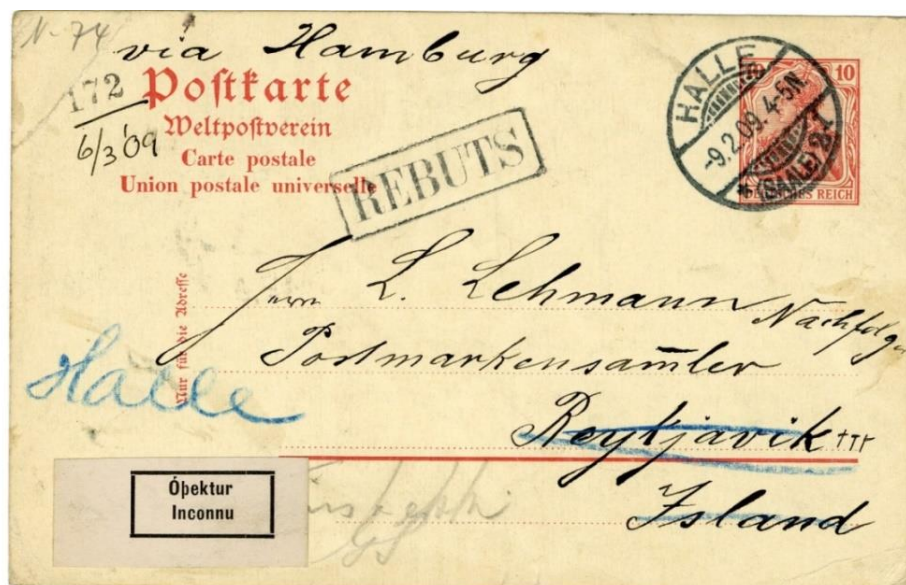 N. 74
via Hamburg
172
6/3 '09
Postkarte
Weltpostverein
Carte postale
Union postale universelle
REBUTS
HALLE
-9.2.09.4-5N.
* (SAALE) 2 f
10 10
DEUTSCHES REICH
Nur für die Adresse
Herrn L. Lehmann Nachfolger
Postmarkensam̅ler
Halle
Reykjavik
Island
Óþektur
Inconnu